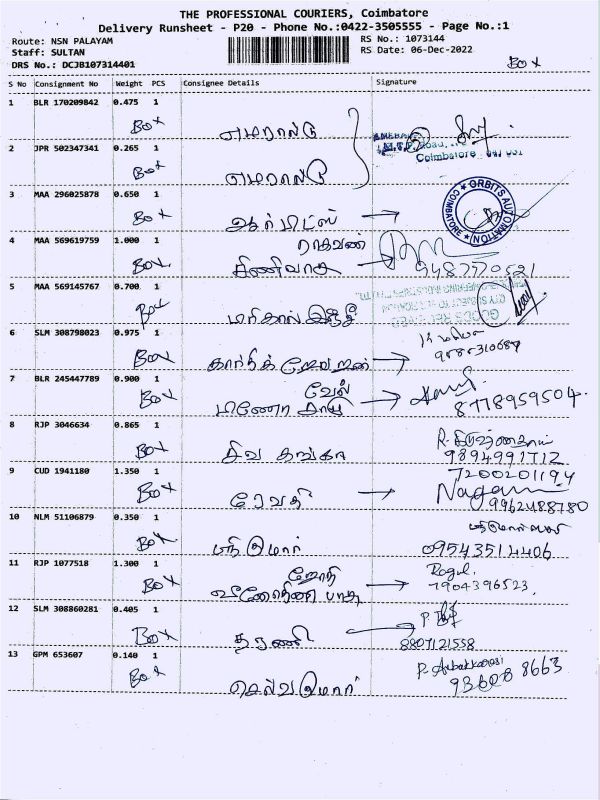 THE PROFESSIONAL COURIERS, Coimbatore
Delivery Runsheet - P20 - Phone No.:0422-3505555 - Page No.:1
Route: NSN PALAYAM
RS No.: 1073144
Staff: SULTAN
RS Date: 06-Dec-2022
DRS No.: DCJB107314401
Box
S No Consignment No Weight PCS Consignee Details Signature
1 BLR 170209842 0.475 1
Box எமரால்டு
Coimbatore
2 JPR 502347341 0.265 1
Box எமரால்டு
3 MAA 296025878 0.650 1
Box ஆர்பிட்ஸ்
ORBITS AUTOMATION
COIMBATORE
4 MAA 569619759 1.000 1
ராகவன்
Box சீனிவாச
9487770521
5 MAA 569145767 0.700 1
GOODS RECEIVED
Box
6 SLM 308798023 0.975 1
Box கார்த்திக்
9585310687
7 BLR 245447789 0.900 1
வேல்
Box
8778959504.
8 RJP 3046634 0.865 1
Box சிவ கங்கா
9894991712
9 CUD 1941180 1.350 1
7200201194
Box ரேவதி
Nagam
9962488780
10 NLM 51106879 0.350 1
Box மதிகுமார்
09543514406
11 RJP 1077518 1.300 1
ஜோதி
Ragul.
Box
7904396523
12 SLM 308860281 0.405 1
Box தரணி
8807121558
13 GPM 653607 0.140 1
Box செல்வகுமார்